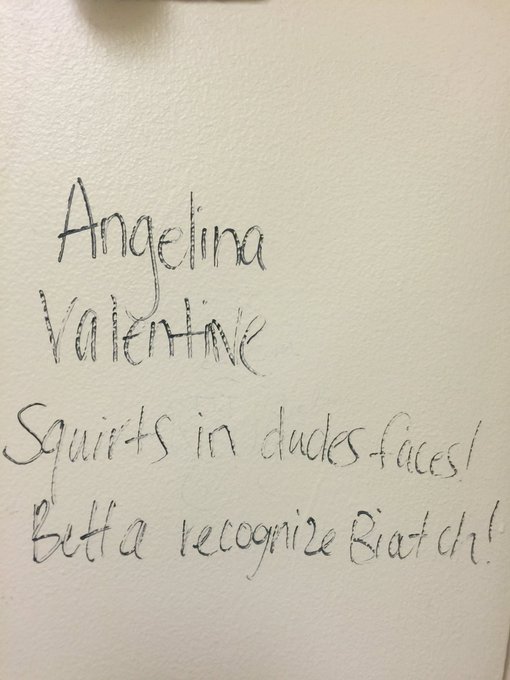 Angelina
Valentine
Squirts in dudes faces!
Betta recognize Biatch!